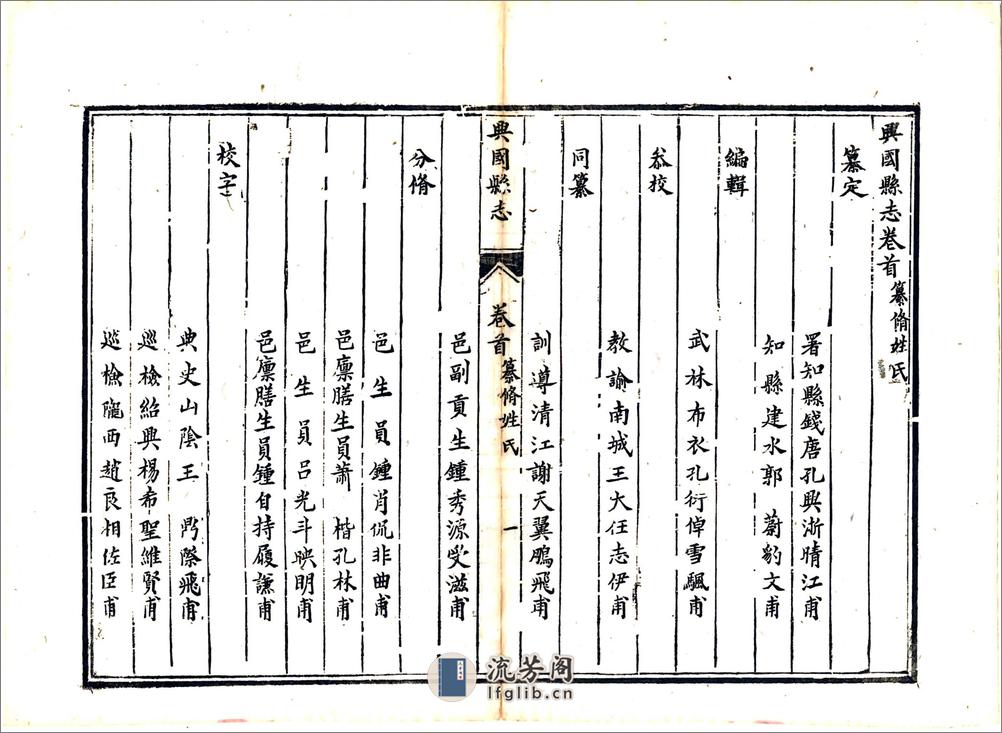 興國縣志卷首 纂脩姓氏
纂定
署知縣錢唐孔興浙晴江甫
知縣建水郭 蔚豹文甫
編輯
武林布衣孔衍倬雪颿甫
叅校
教諭南城王大任志伊甫
同纂
訓導清江謝天翼鵬飛甫
興國縣志 卷首 纂脩姓氏 一
邑副貢生鍾秀源受滋甫
分脩
邑生員鍾肖侃非曲甫
邑廪膳生員蕭 楷孔林甫
邑生員呂光斗映明甫
邑廪膳生員鍾自持履謙甫
校字
典史山陰王 鹍際飛甫
巡檢紹興楊希聖維賢甫
巡檢隴西趙良相佐臣甫
流芳阁
lfglib.cn